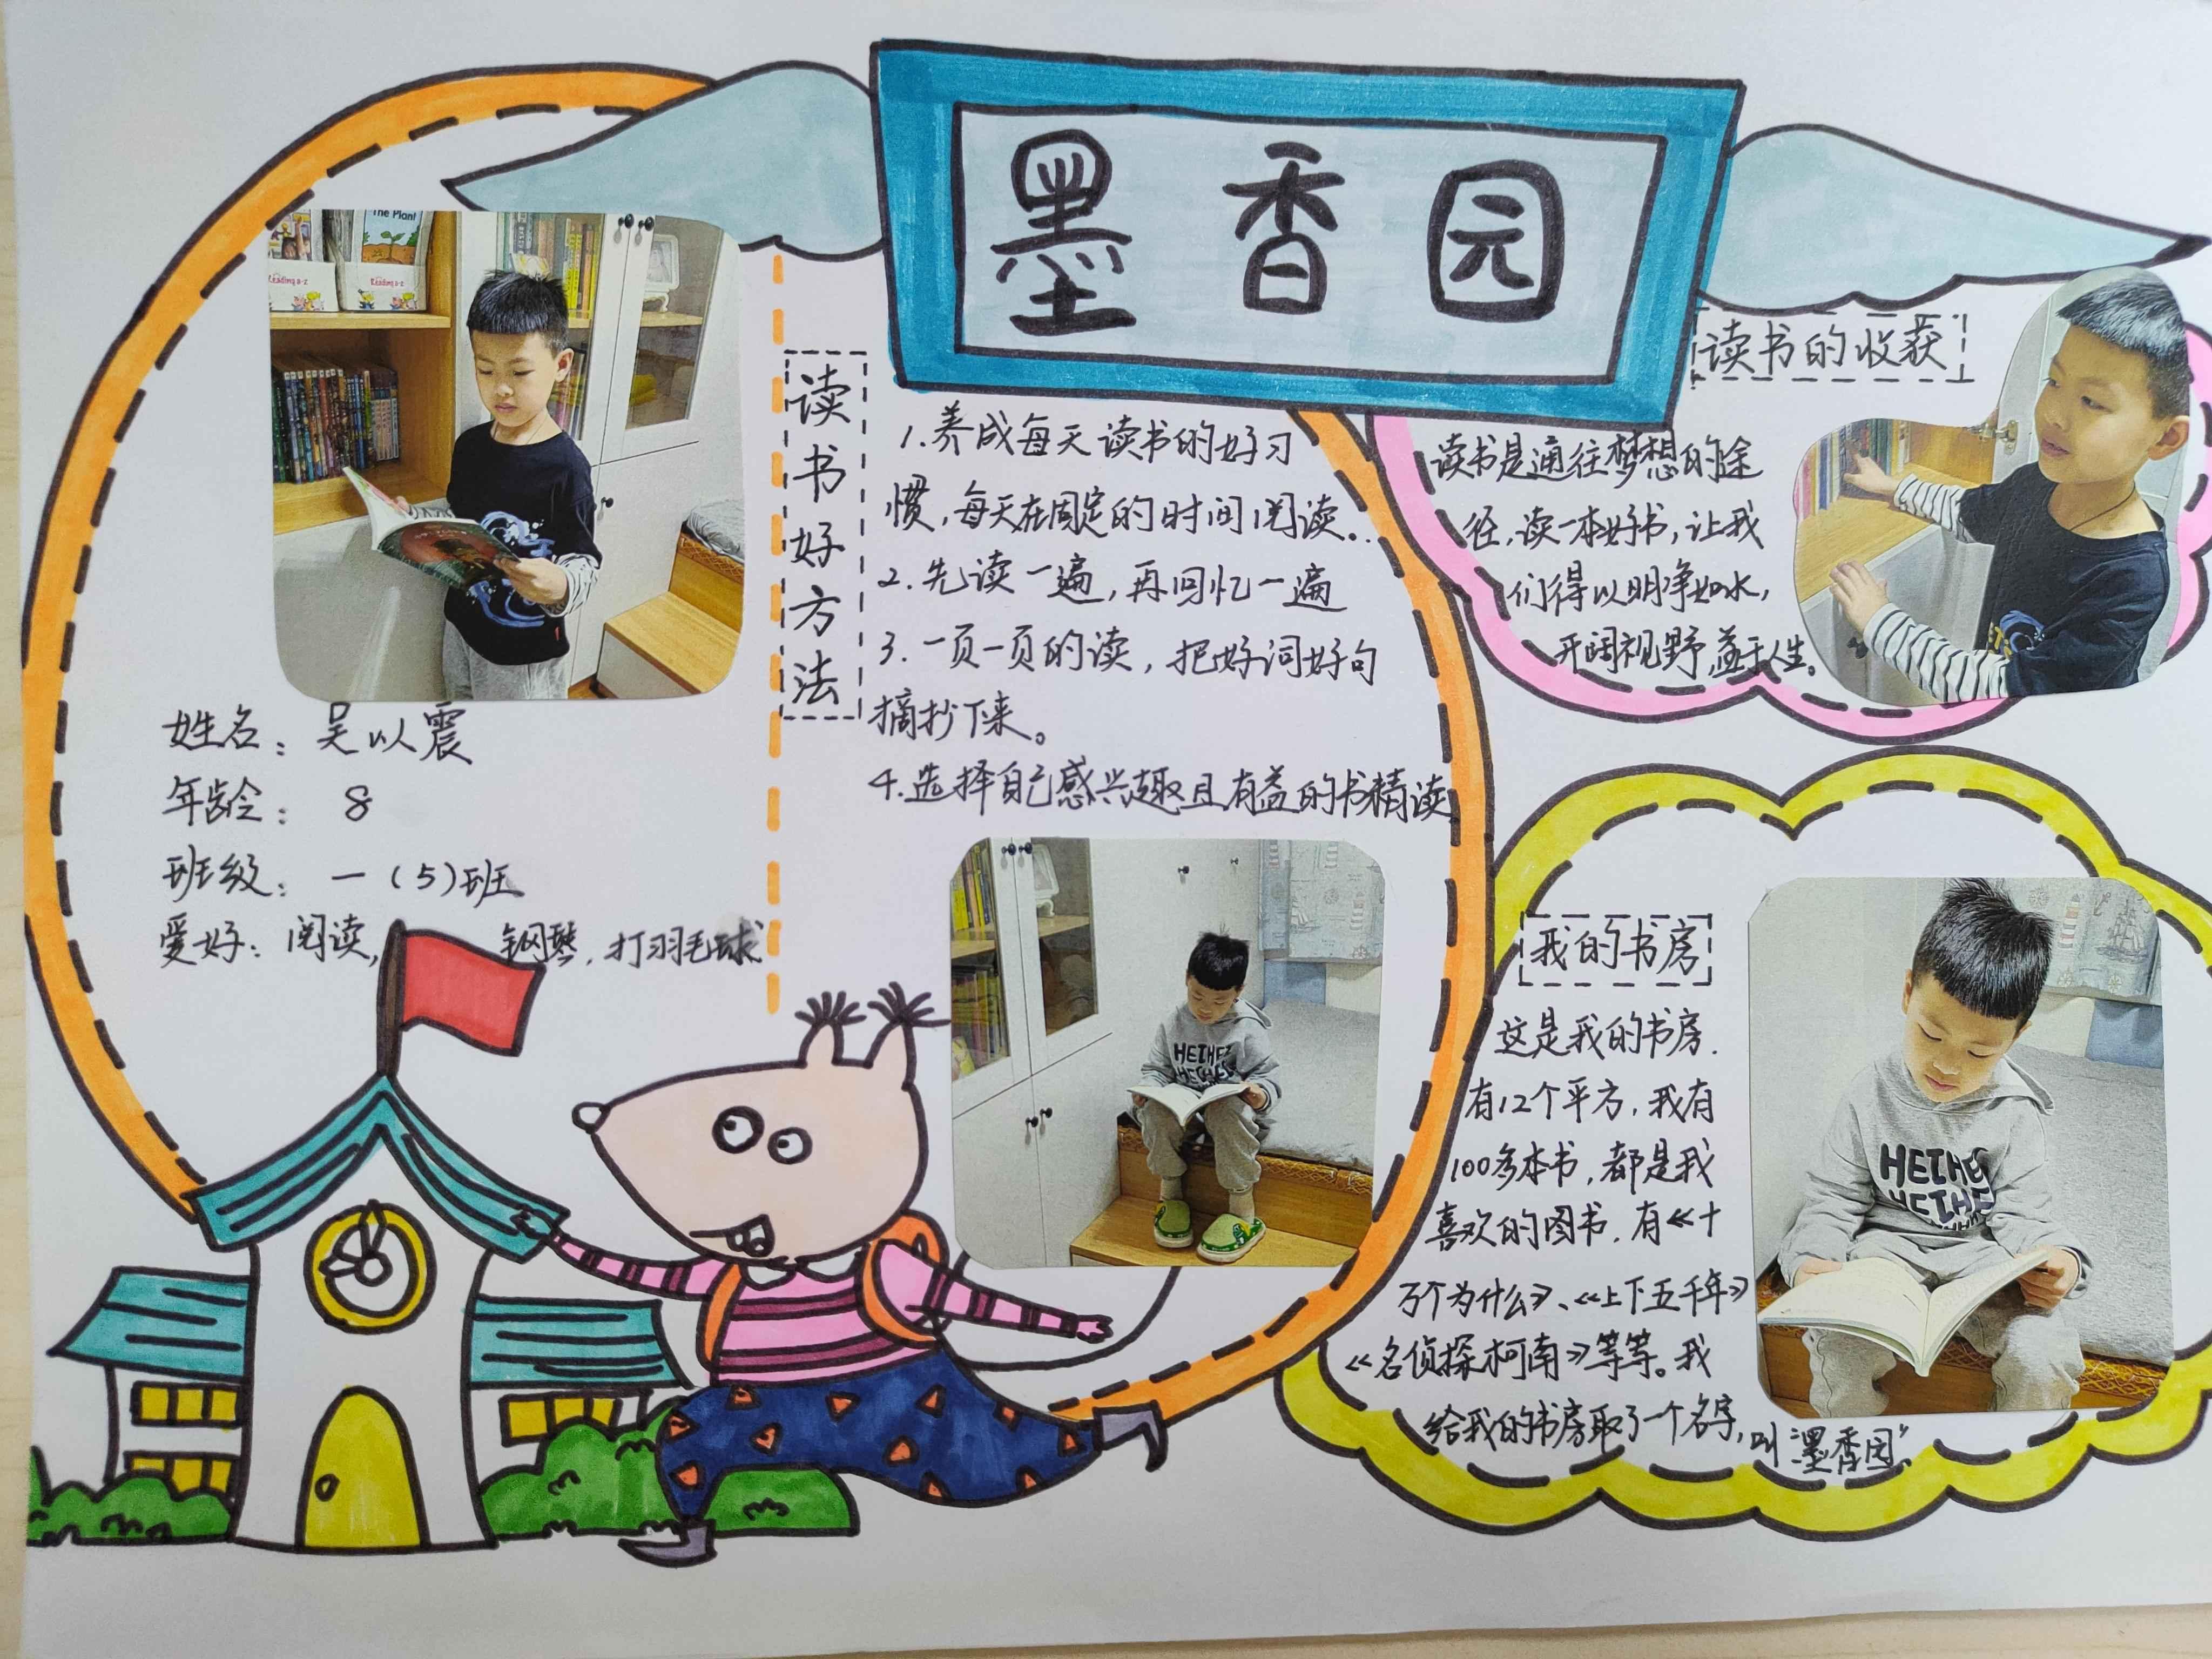 墨香园
The Plant
Reading a-z
Reading a-z
姓名：吴以震
年龄：8
班级：一（5）班
爱好：阅读，钢琴，打羽毛球
读书好方法
1.养成每天读书的好习
惯，每天在固定的时间阅读。
2.先读一遍，再回忆一遍
3.一页一页的读，把好词好句
摘抄下来。
4.选择自己感兴趣且有益的书精读
HETHE
读书的收获
读书是通往梦想的途
径，读一本好书，让我
们得以明净如水，
开阔视野，益于人生。
我的书房
这是我的书房.
有12个平方，我有
100多本书，都是我
喜欢的图书.有《十
万个为什么》、《上下五千年》
《名侦探柯南》等等。我
给我的书房取了一个名字，叫“墨香园”。
HETHE